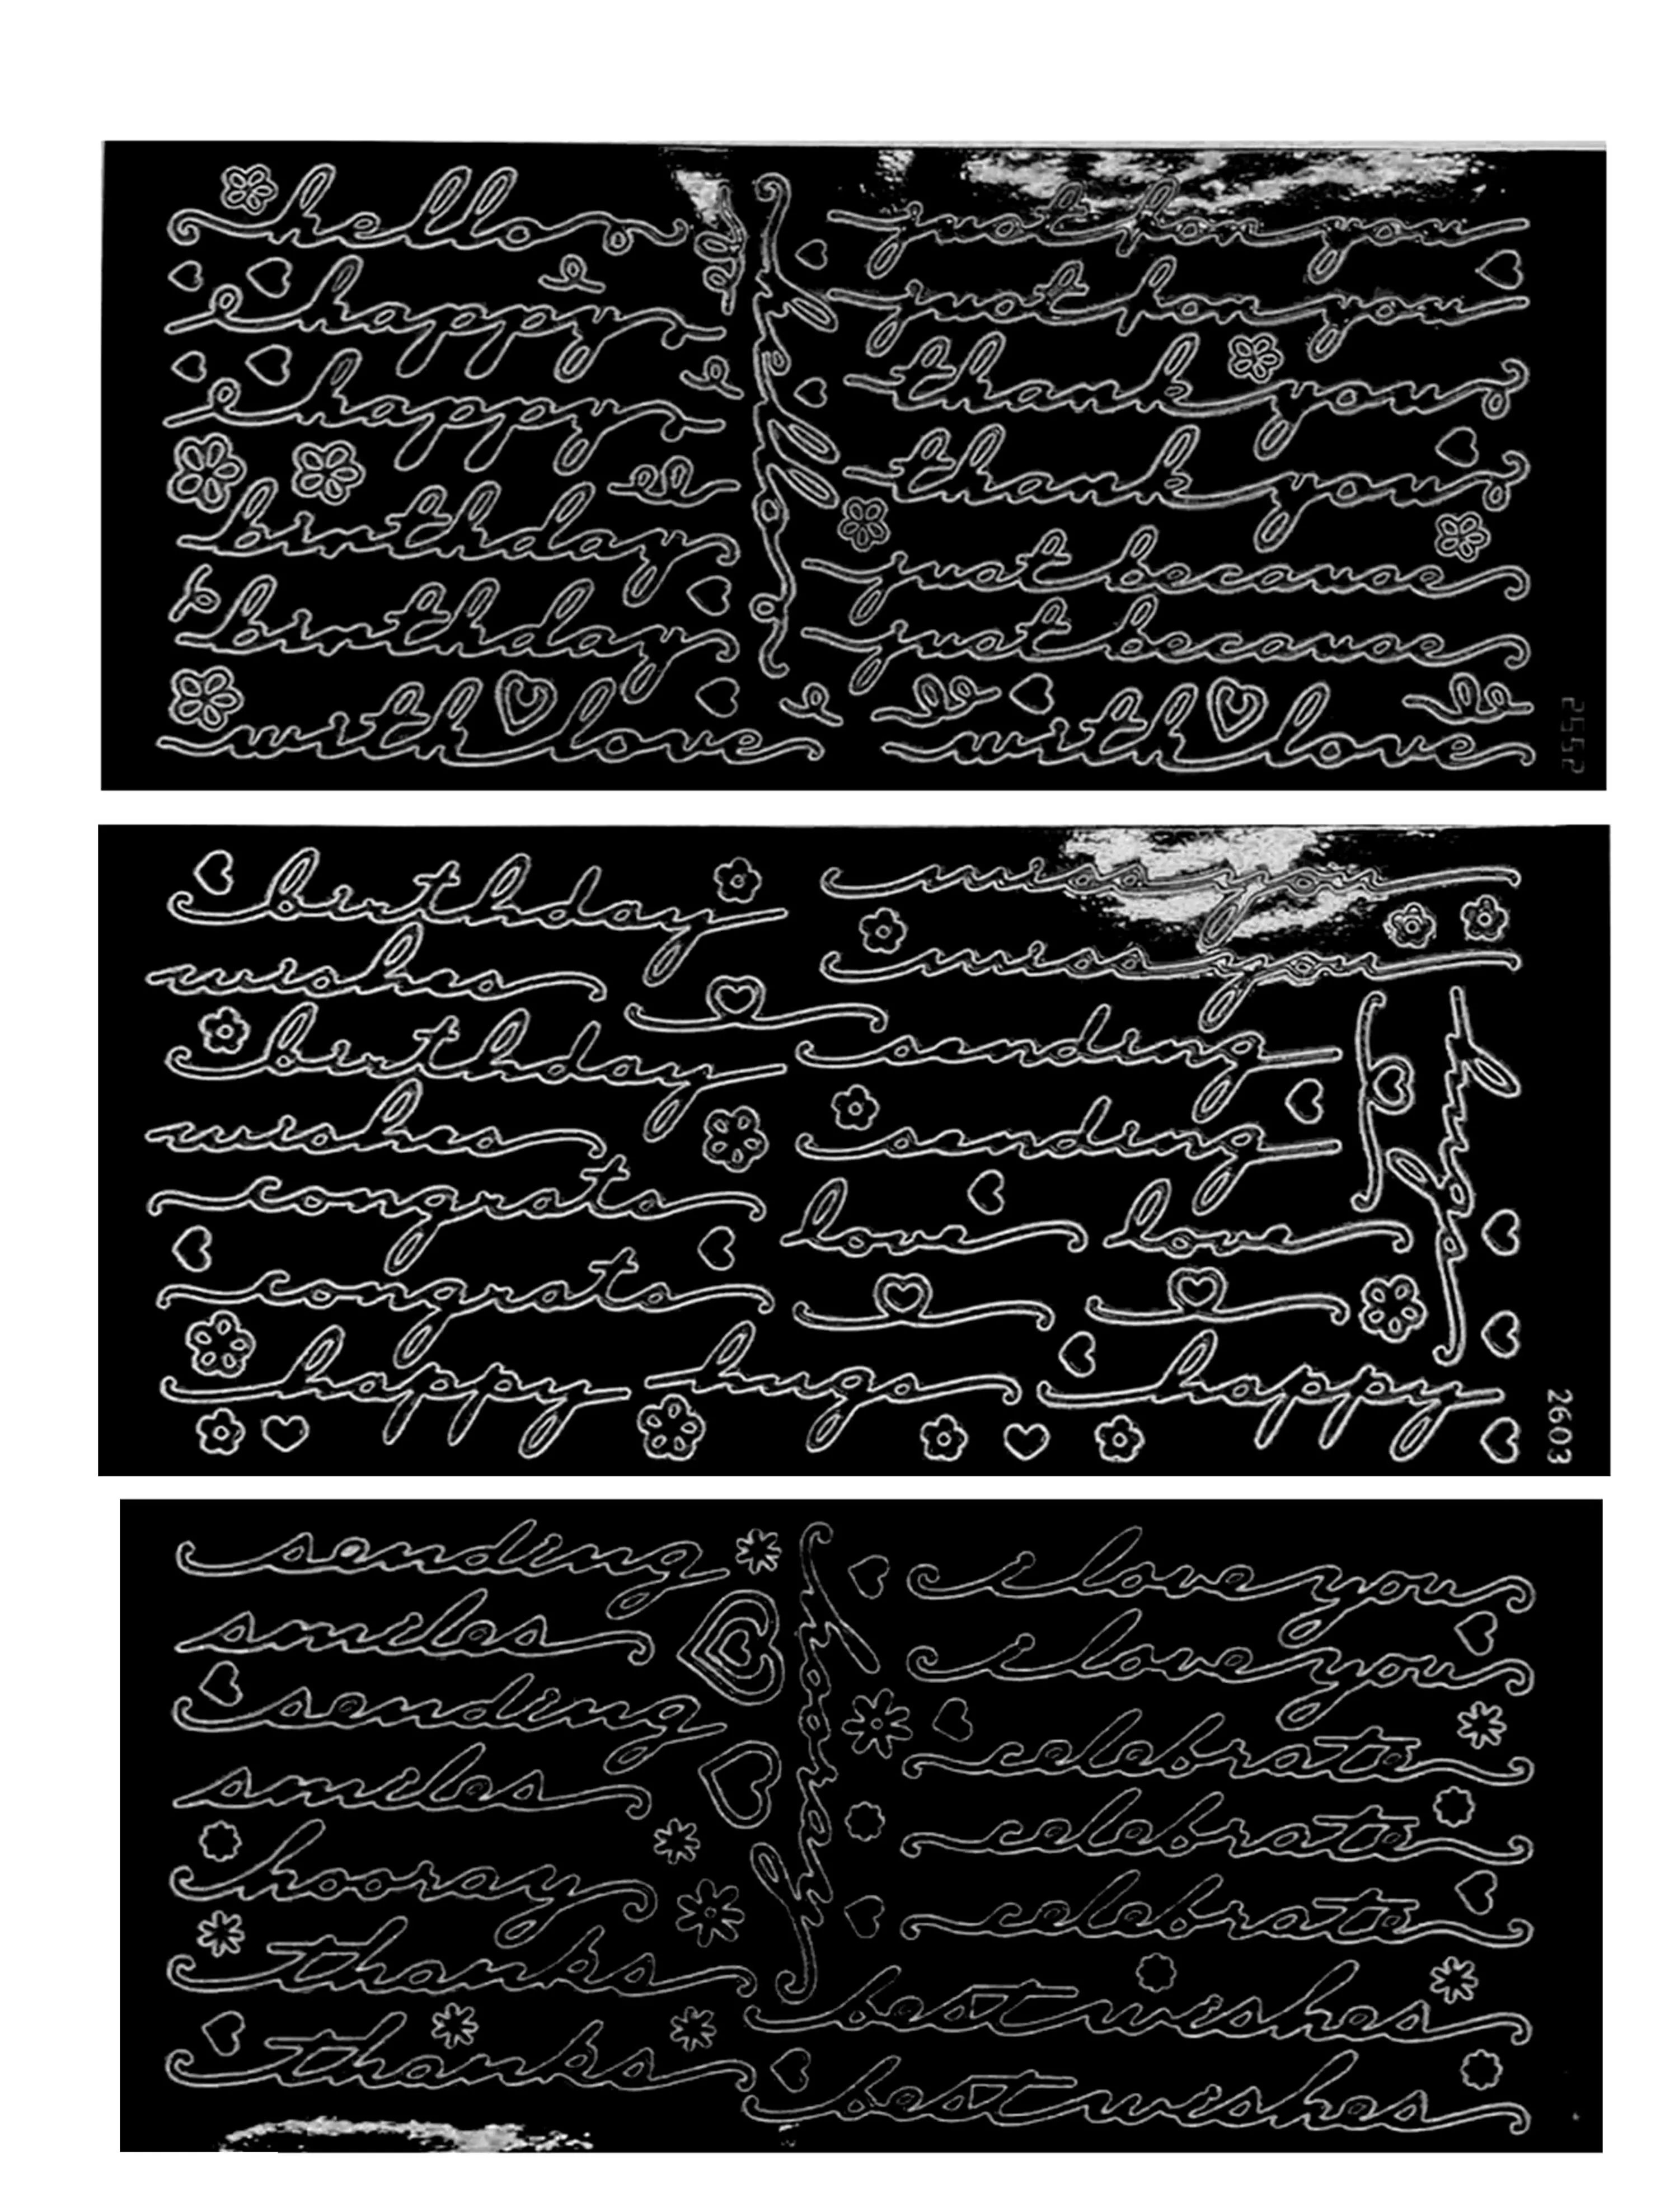 hello
happy
happy
birthday
birthday
with love
hello
just for you
just for you
thank you
thank you
just because
just because
with love
2552
birthday
wishes
birthday
wishes
congrats
congrats
happy hugs happy
miss you
miss you
sending
sending
love love
hugs
2603
sending
smiles
sending
smiles
hooray
thanks
thanks
hooray
i love you
i love you
celebrate
celebrate
celebrate
best wishes
best wishes